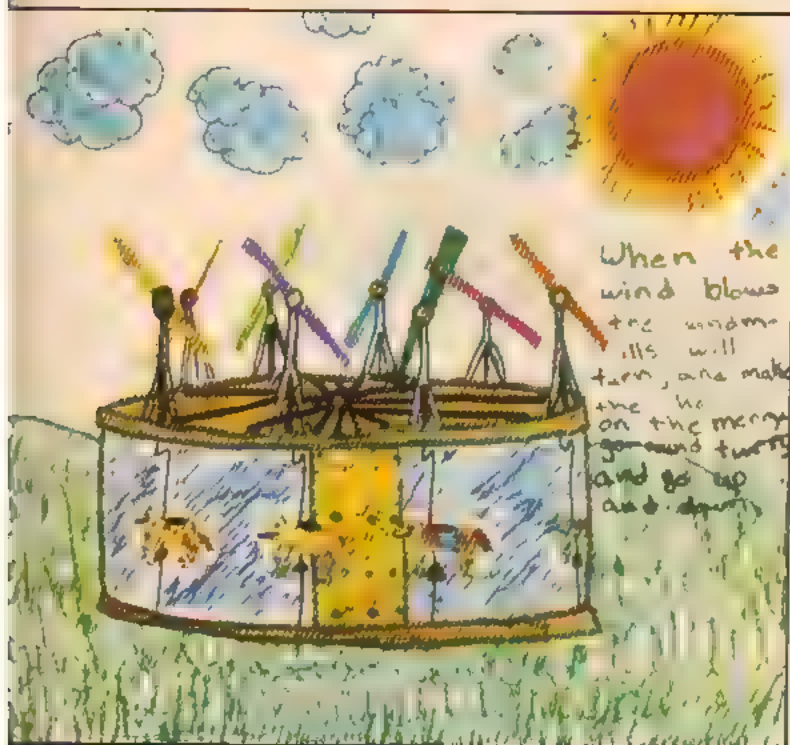 When the
wind blows
the windm-
ills will
turn, and make
the ho
on the merry
go round turn
and go up
and down